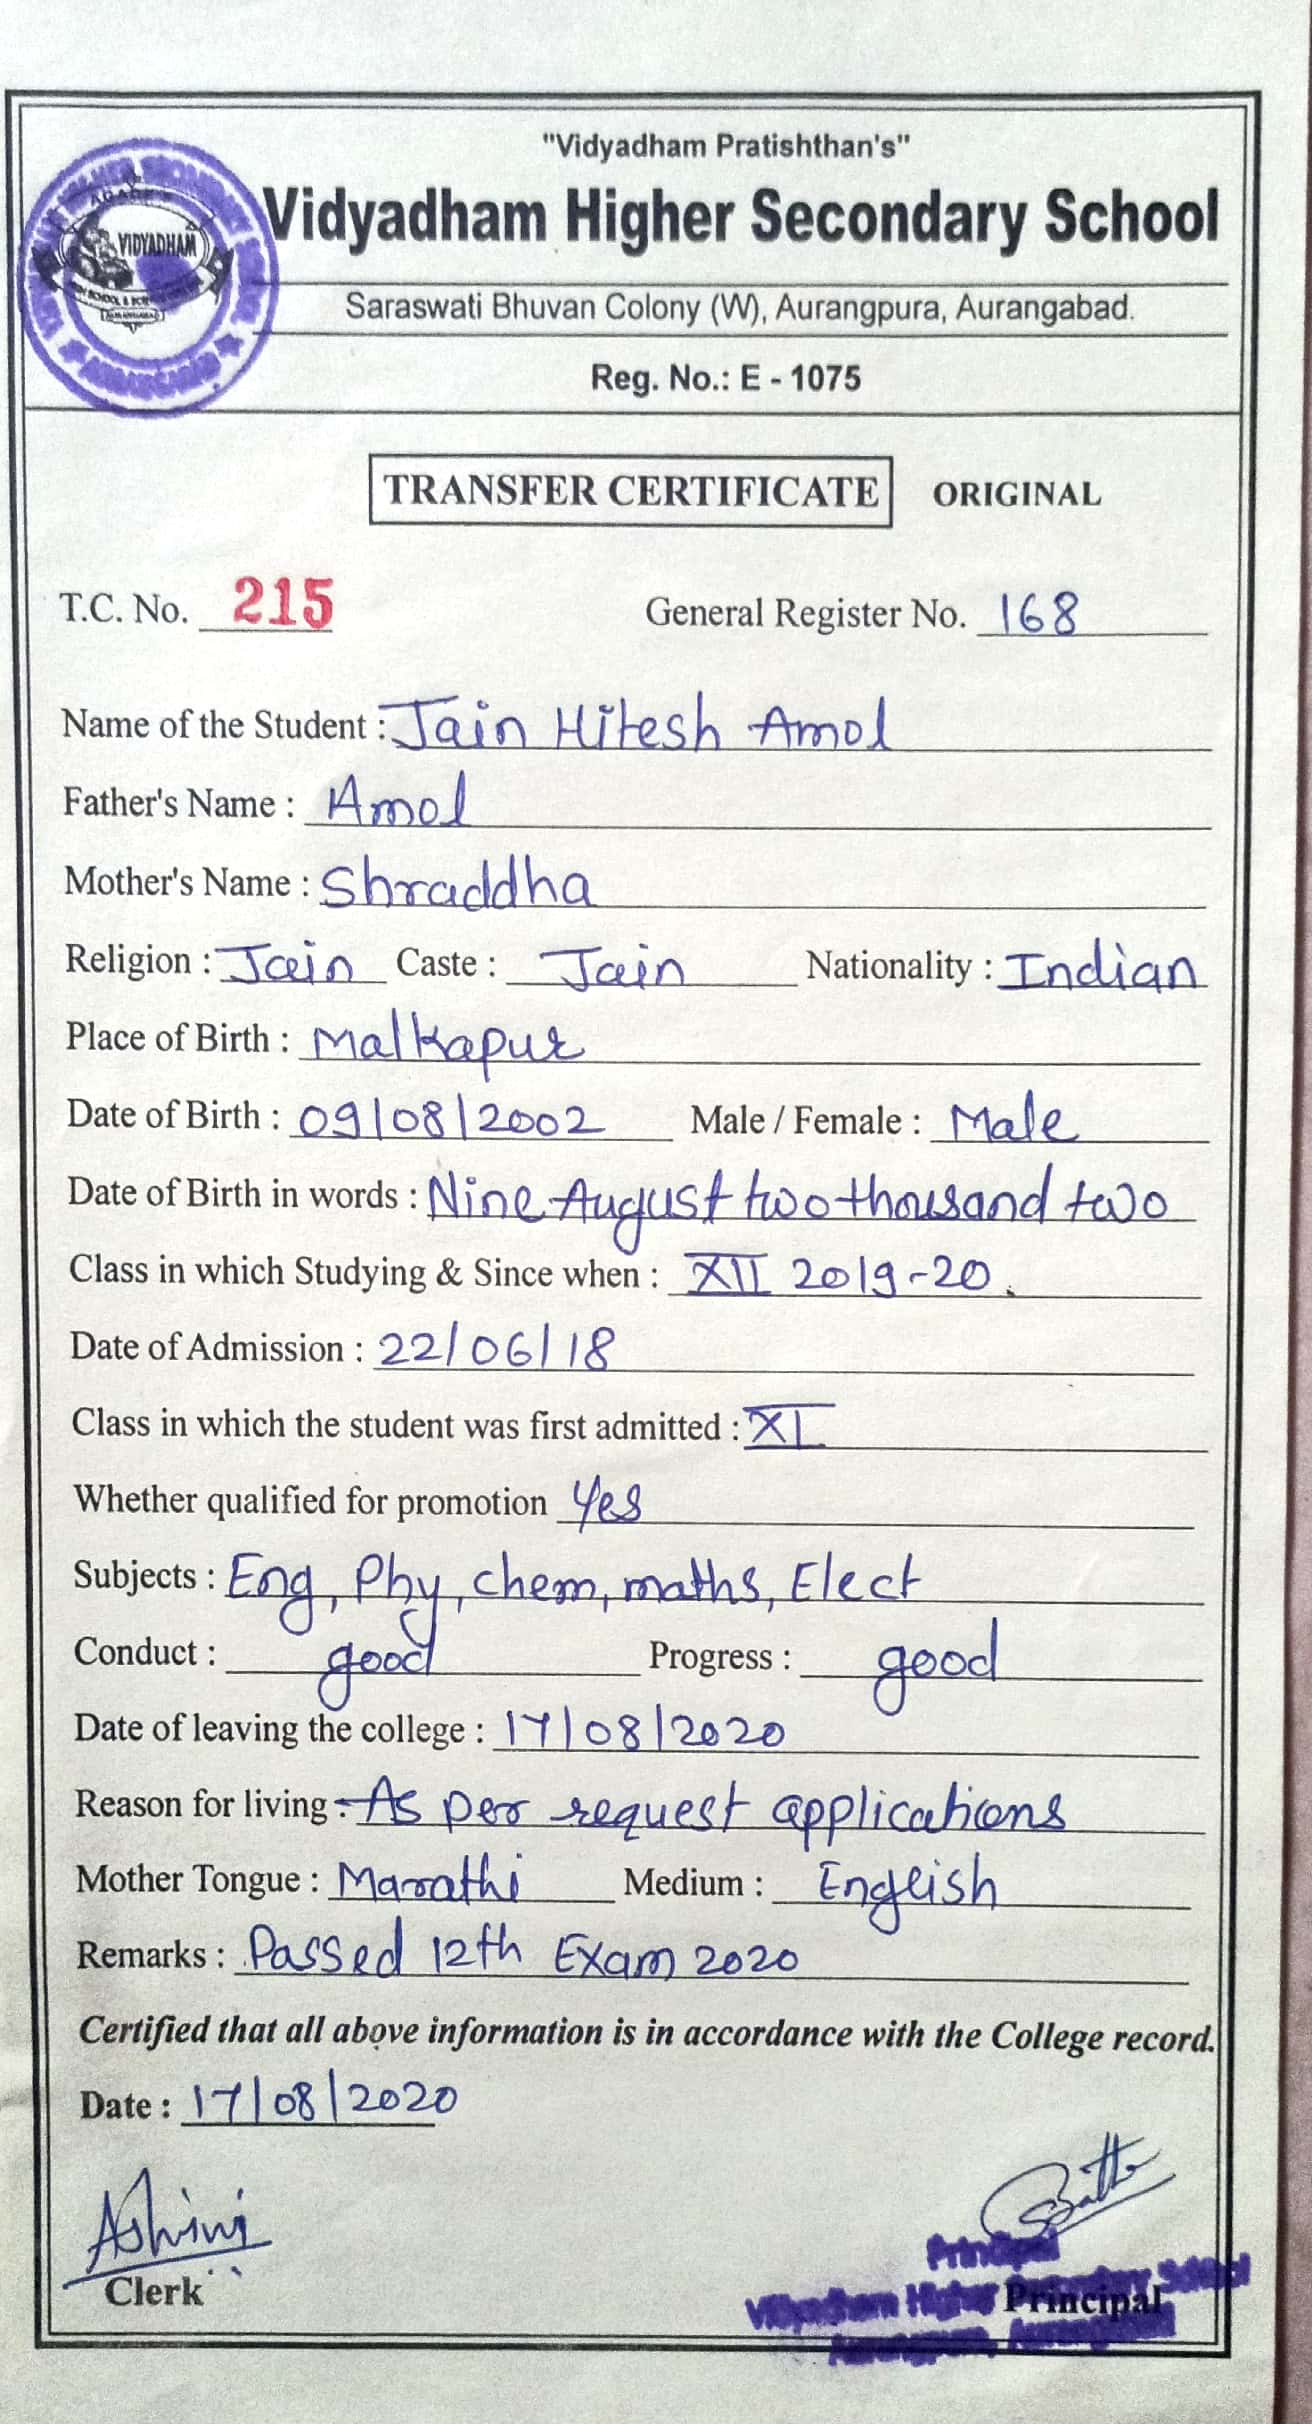 "Vidyadham Pratishthan's"
Vidyadham Higher Secondary School
VIDYADHAM
Saraswati Bhuvan Colony (W), Aurangpura, Aurangabad.
Reg. No.: E - 1075
TRANSFER CERTIFICATE ORIGINAL
T.C. No. 215 General Register No. 168
Name of the Student : Jain Hitesh Amol
Father's Name : Amol
Mother's Name : Shraddha
Religion : Jain Caste : Jain Nationality : Indian
Place of Birth : Malkapur
Date of Birth : 09/08/2002 Male / Female : Male
Date of Birth in words : Nine August two thousand two
Class in which Studying & Since when : XII 2019-20.
Date of Admission : 22/06/18
Class in which the student was first admitted : XI
Whether qualified for promotion Yes
Subjects : Eng, Phy, chem, maths, Elect
Conduct : good Progress : good
Date of leaving the college : 17/08/2020
Reason for living : As per request applications
Mother Tongue : Marathi Medium : English
Remarks : Passed 12th Exam 2020
Certified that all above information is in accordance with the College record.
Date : 17/08/2020
Ashini
Clerk
Principal
Vidyadham Higher Secondary School
Aurangpura, Aurangabad
Principal